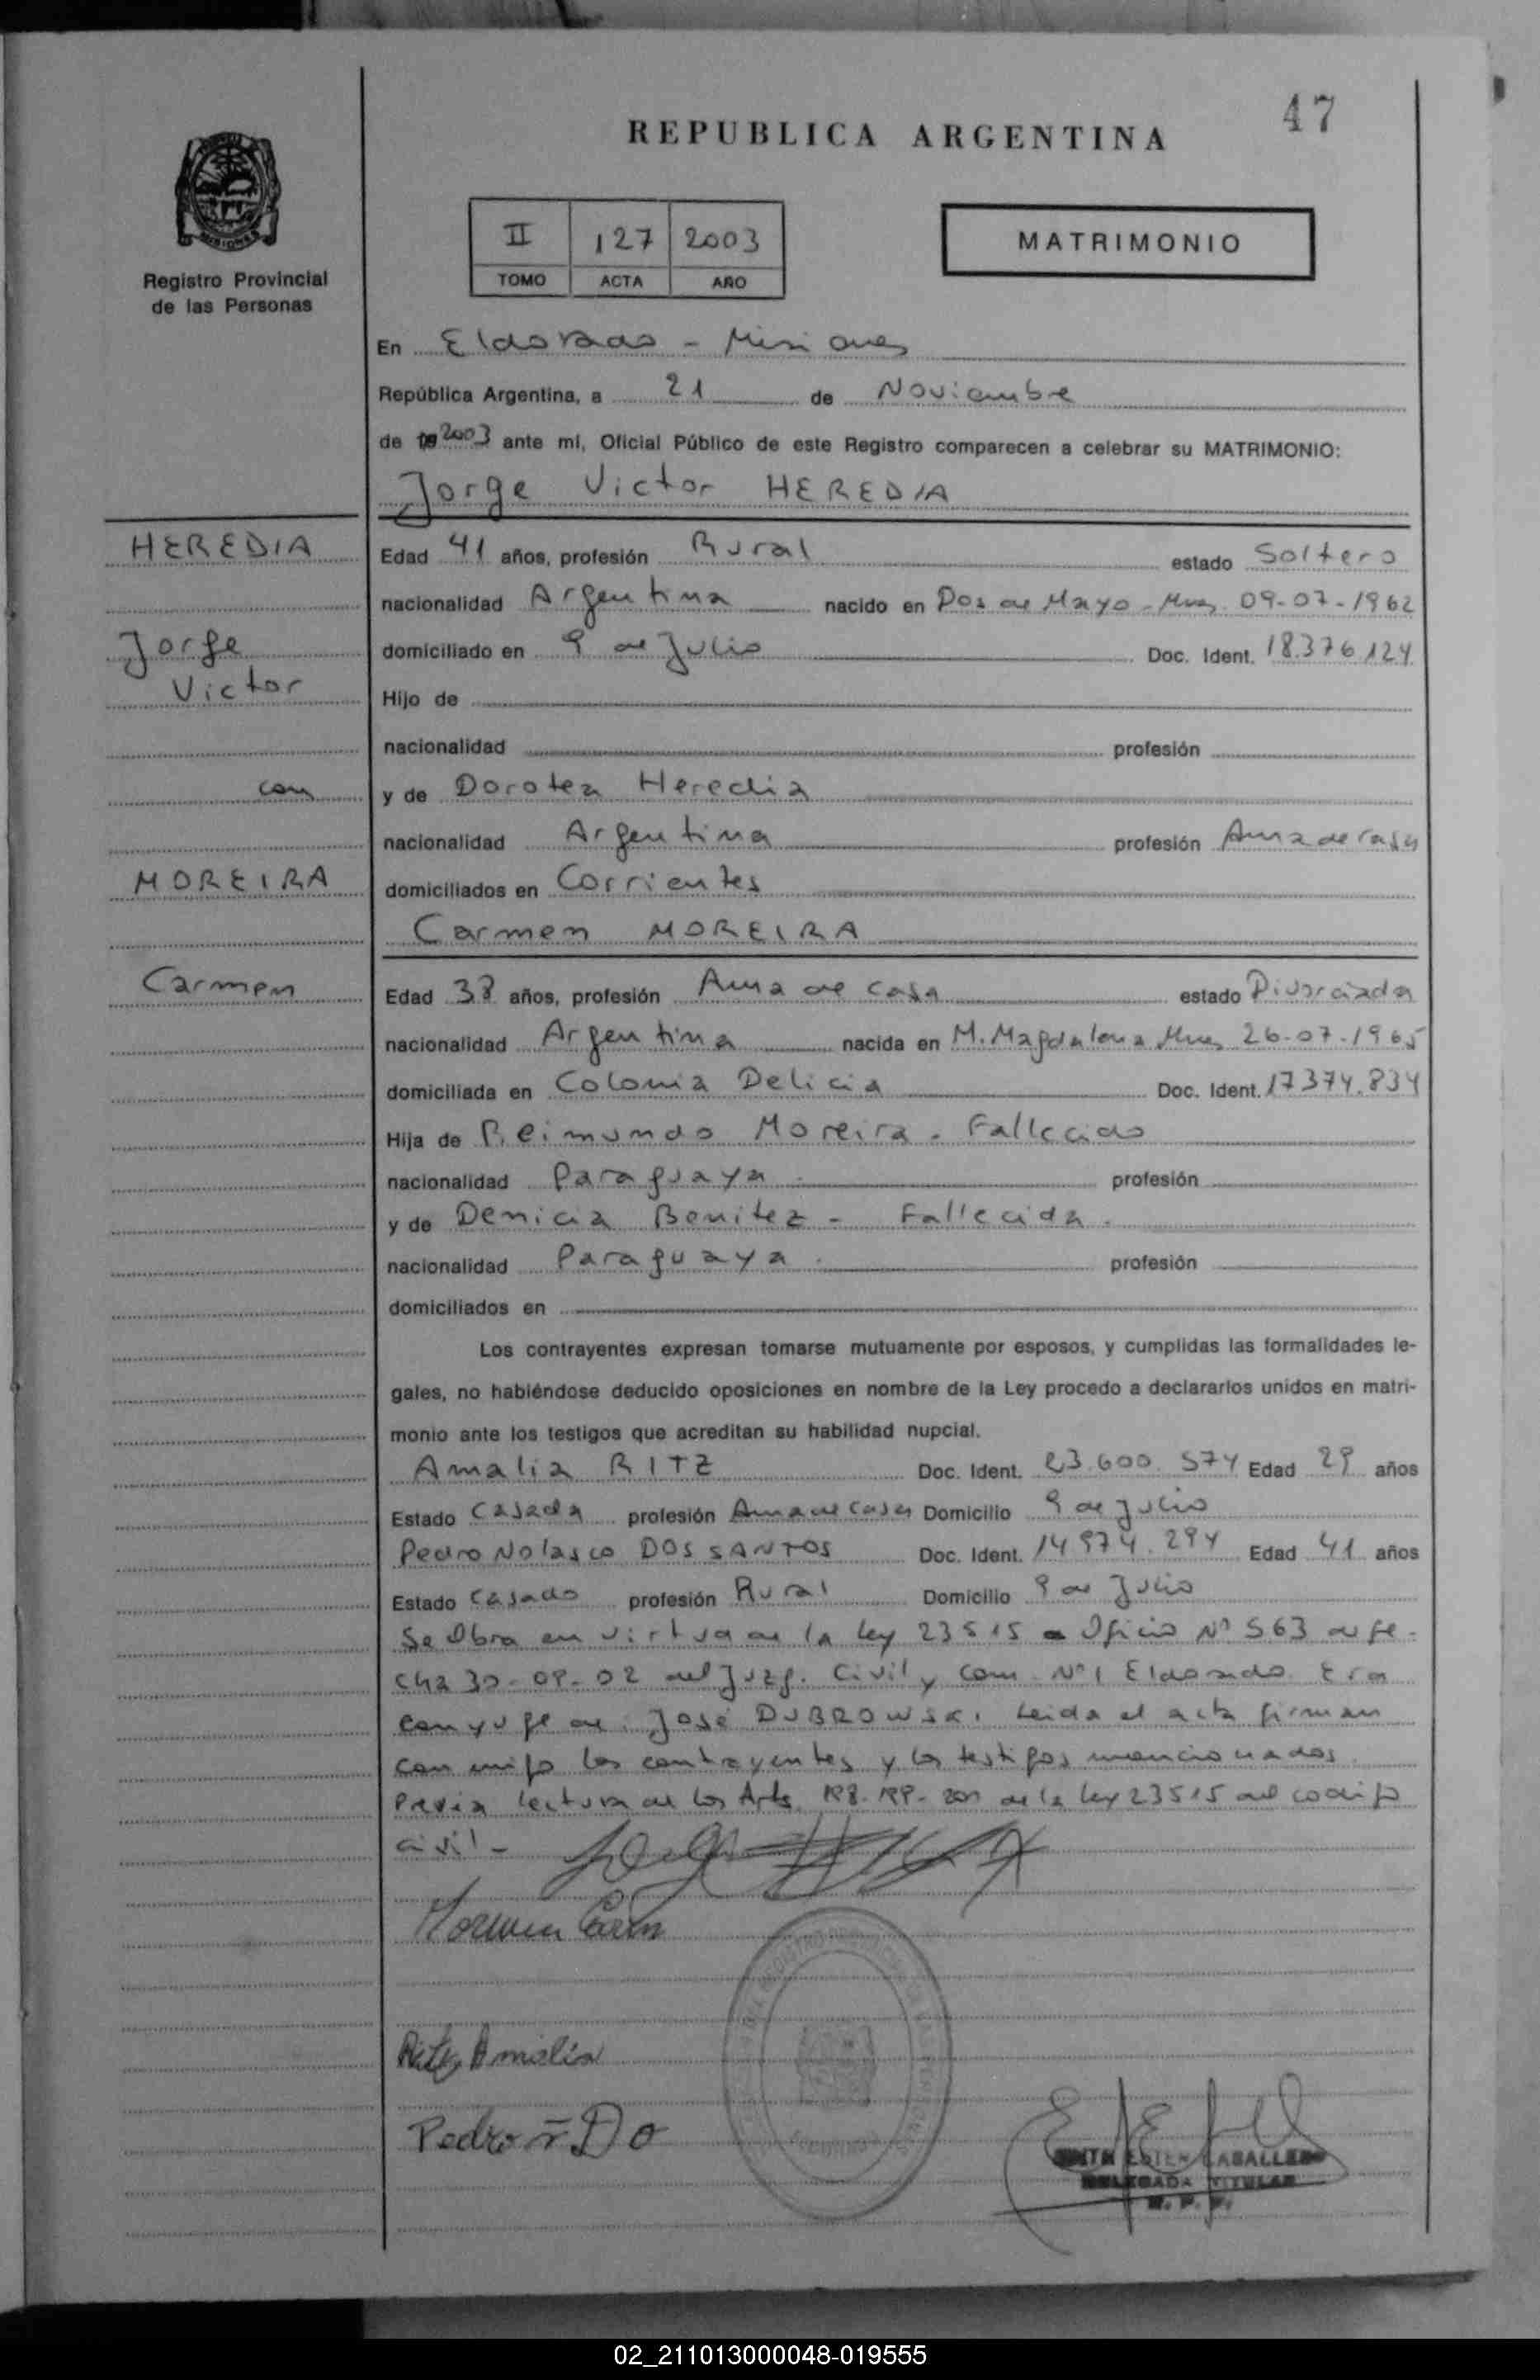 47
REPUBLICA ARGENTINA
MISIONES
Registro Provincial
de las Personas
II 127 2003
TOMO ACTA AÑO
MATRIMONIO
En Eldorado - Misiones
República Argentina, a 21 de Noviembre
de 19 2003 ante mí, Oficial Público de este Registro comparecen a celebrar su MATRIMONIO:
Jorge Victor HEREDIA
HEREDIA
Jorge
Victor
con
MOREIRA
Carmen
Edad 41 años, profesión Rural estado Soltero
nacionalidad Argentina nacido en Dos de Mayo - Mnes 09-07-1962
domiciliado en 9 de Julio Doc. Ident. 18.376.124
Hijo de
nacionalidad profesión
y de Dorotea Heredia
nacionalidad Argentina profesión Ama de casa
domiciliados en Corrientes
Carmen MOREIRA
Edad 38 años, profesión Ama de casa estado Divorciada
nacionalidad Argentina nacida en M. Magdalena Mnes 26-07-1965
domiciliada en Colonia Delicia Doc. Ident. 17374.834
Hija de Reimundo Moreira - Fallecido
nacionalidad Paraguaya profesión
y de Denicia Benitez - Fallecida.
nacionalidad Paraguaya. profesión
domiciliados en
Los contrayentes expresan tomarse mutuamente por esposos, y cumplidas las formalidades le-
gales, no habiéndose deducido oposiciones en nombre de la Ley procedo a declararlos unidos en matri-
monio ante los testigos que acreditan su habilidad nupcial.
Amalia RITZ Doc. Ident. 23.600.574 Edad 29 años
Estado Casada profesión Ama de casa Domicilio 9 de Julio
Pedro Nolasco DOS SANTOS Doc. Ident. 14 974.294 Edad 41 años
Estado Casado profesión Rural Domicilio 9 de Julio
Se obra en virtud de la ley 23515 Oficio Nº 563 de fe-
cha 30-09-02 del Juzg. Civil y Com. Nº1 Eldorado. Era
conyuge de José DUBROWSKI. Leida el acta firman
conmigo los contrayentes y los testigos mencionados.
Previa lectura de los Arts. 198-199-200 de la ley 23515 del codigo
civil -
Ritz Amalia
Pedro n Do
EDITH ESTER CABALLERO
DELEGADA TITULAR
R. P. P.
02_211013000048-019555